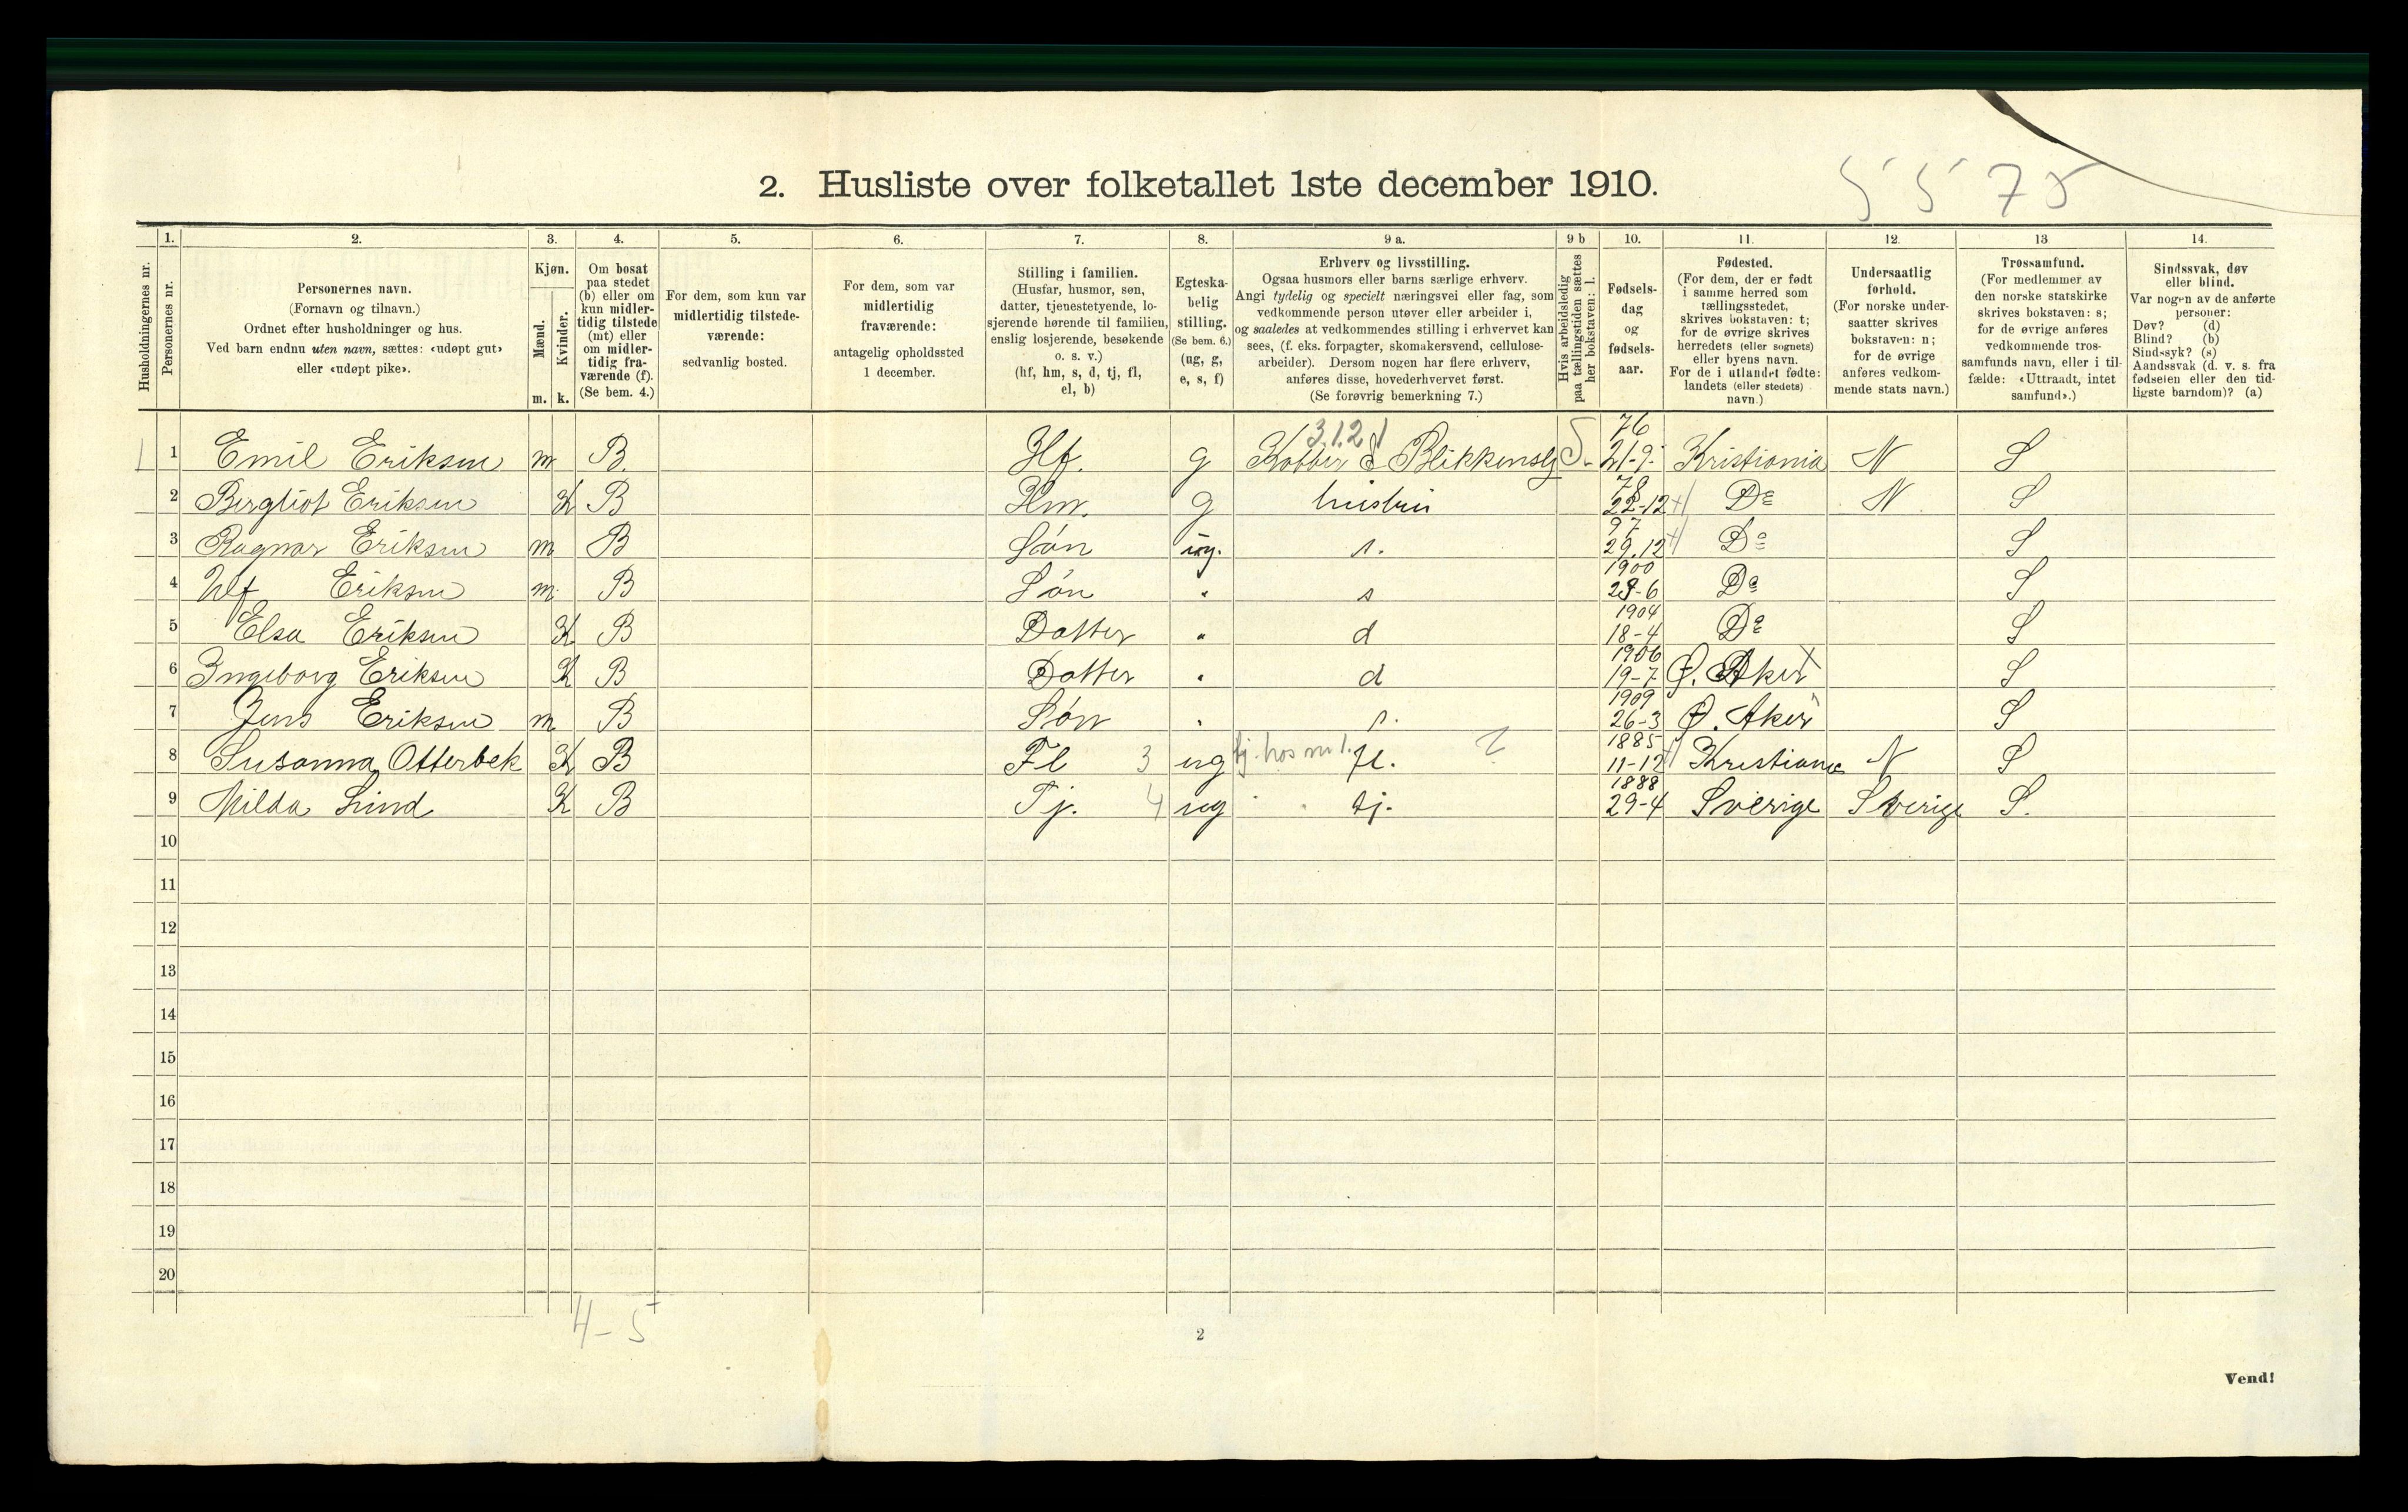 5 5 7 5
2. Husliste over folketallet 1ste december 1910.
Husholdningernes nr.
1.
Personernes nr.
2.
Personernes navn.
(Fornavn og tilnavn.)
Ordnet efter husholdninger og hus.
Ved barn endnu uten navn, sættes: «udøpt gut»
eller «udøpt pike».
3.
Kjøn.
Mænd.
Kvinder.
m. k.
4.
Om bosat
paa stedet
(b) eller om
kun midler-
tidig tilstede
(mt) eller
om midler-
tidig fra-
værende (f).
(Se bem. 4.)
5.
For dem, som kun var
midlertidig tilstede-
værende:
sedvanlig bosted.
6.
For dem, som var
midlertidig
fraværende:
antagelig opholdssted
1 december.
7.
Stilling i familien.
(Husfar, husmor, søn,
datter, tjenestetyende, lo-
sjerende hørende til familien,
enslig losjerende, besøkende
o. s. v.)
(hf, hm, s, d, tj, fl,
el, b)
8.
Egteska-
belig
stilling.
(Se bem. 6.)
(ug, g,
e, s, f)
9 a.
Erhverv og livsstilling.
Ogsaa husmors eller barns særlige erhverv.
Angi tydelig og specielt næringsvei eller fag, som
vedkommende person utøver eller arbeider i,
og saaledes at vedkommendes stilling i erhvervet kan
sees, (f. eks. forpagter, skomakersvend, cellulose-
arbeider). Dersom nogen har flere erhverv,
anføres disse, hovederhvervet først.
(Se forøvrig bemerkning 7.)
9 b
Hvis arbeidsledig
paa tællingstiden sættes
her bokstaven: l.
10.
Fødsels-
dag
og
fødsels-
aar.
11.
Fødested.
(For dem, der er født
i samme herred som
tællingsstedet,
skrives bokstaven: t;
for de øvrige skrives
herredets (eller sognets)
eller byens navn.
For de i utlandet fødte:
landets (eller stedets)
navn.)
12.
Undersaatlig
forhold.
(For norske under-
saatter skrives
bokstaven: n;
for de øvrige
anføres vedkom-
mende stats navn.)
13
Trossamfund.
(For medlemmer av
den norske statskirke
skrives bokstaven: s;
for de øvrige anføres
vedkommende tros-
samfunds navn, eller i til-
fælde: «Uttraadt, intet
samfund».)
14.
Sindssvak, døv
eller blind.
Var nogen av de anførte
personer:
Døv? (d)
Blind? (b)
Sindssyk? (s)
Aandssvak (d. v. s. fra
fødselen eller den tid-
ligste barndom)? (a)
3.1.2 76
1 1 Emil Eriksen m B. Hf. g Kobber & Blikkensl S. 21-9. Kristiania N S
78
2 Bergliot Eriksen K B Hm. g hustru 22-12 Do N S
97
3 Ragnar Eriksen m B Søn ug. s. 29.12 Do S
1900
4 Ulf Eriksen m B Søn " s 28-6 Do S
1904
5 Elsa Eriksen K B Datter " d 18-4 Do S
1906
6 Ingeborg Eriksen K B Datter " d 19-7 Ø. Aker S
1909
7 Jens Eriksen m B Søn " s. 26-3 Ø. Aker S
1885
8 Susanna Otterbek K B Fl 3 ug tj. hos nr 1. fl. ? 11-12 Kristiania N S
1888
9 Hilda Lind K B Tj. 4 ug tj. 29-4 Sverige Sverige S.
10
11
12
13
14
15
16
17
18
19
20
4-5
2
Vend!